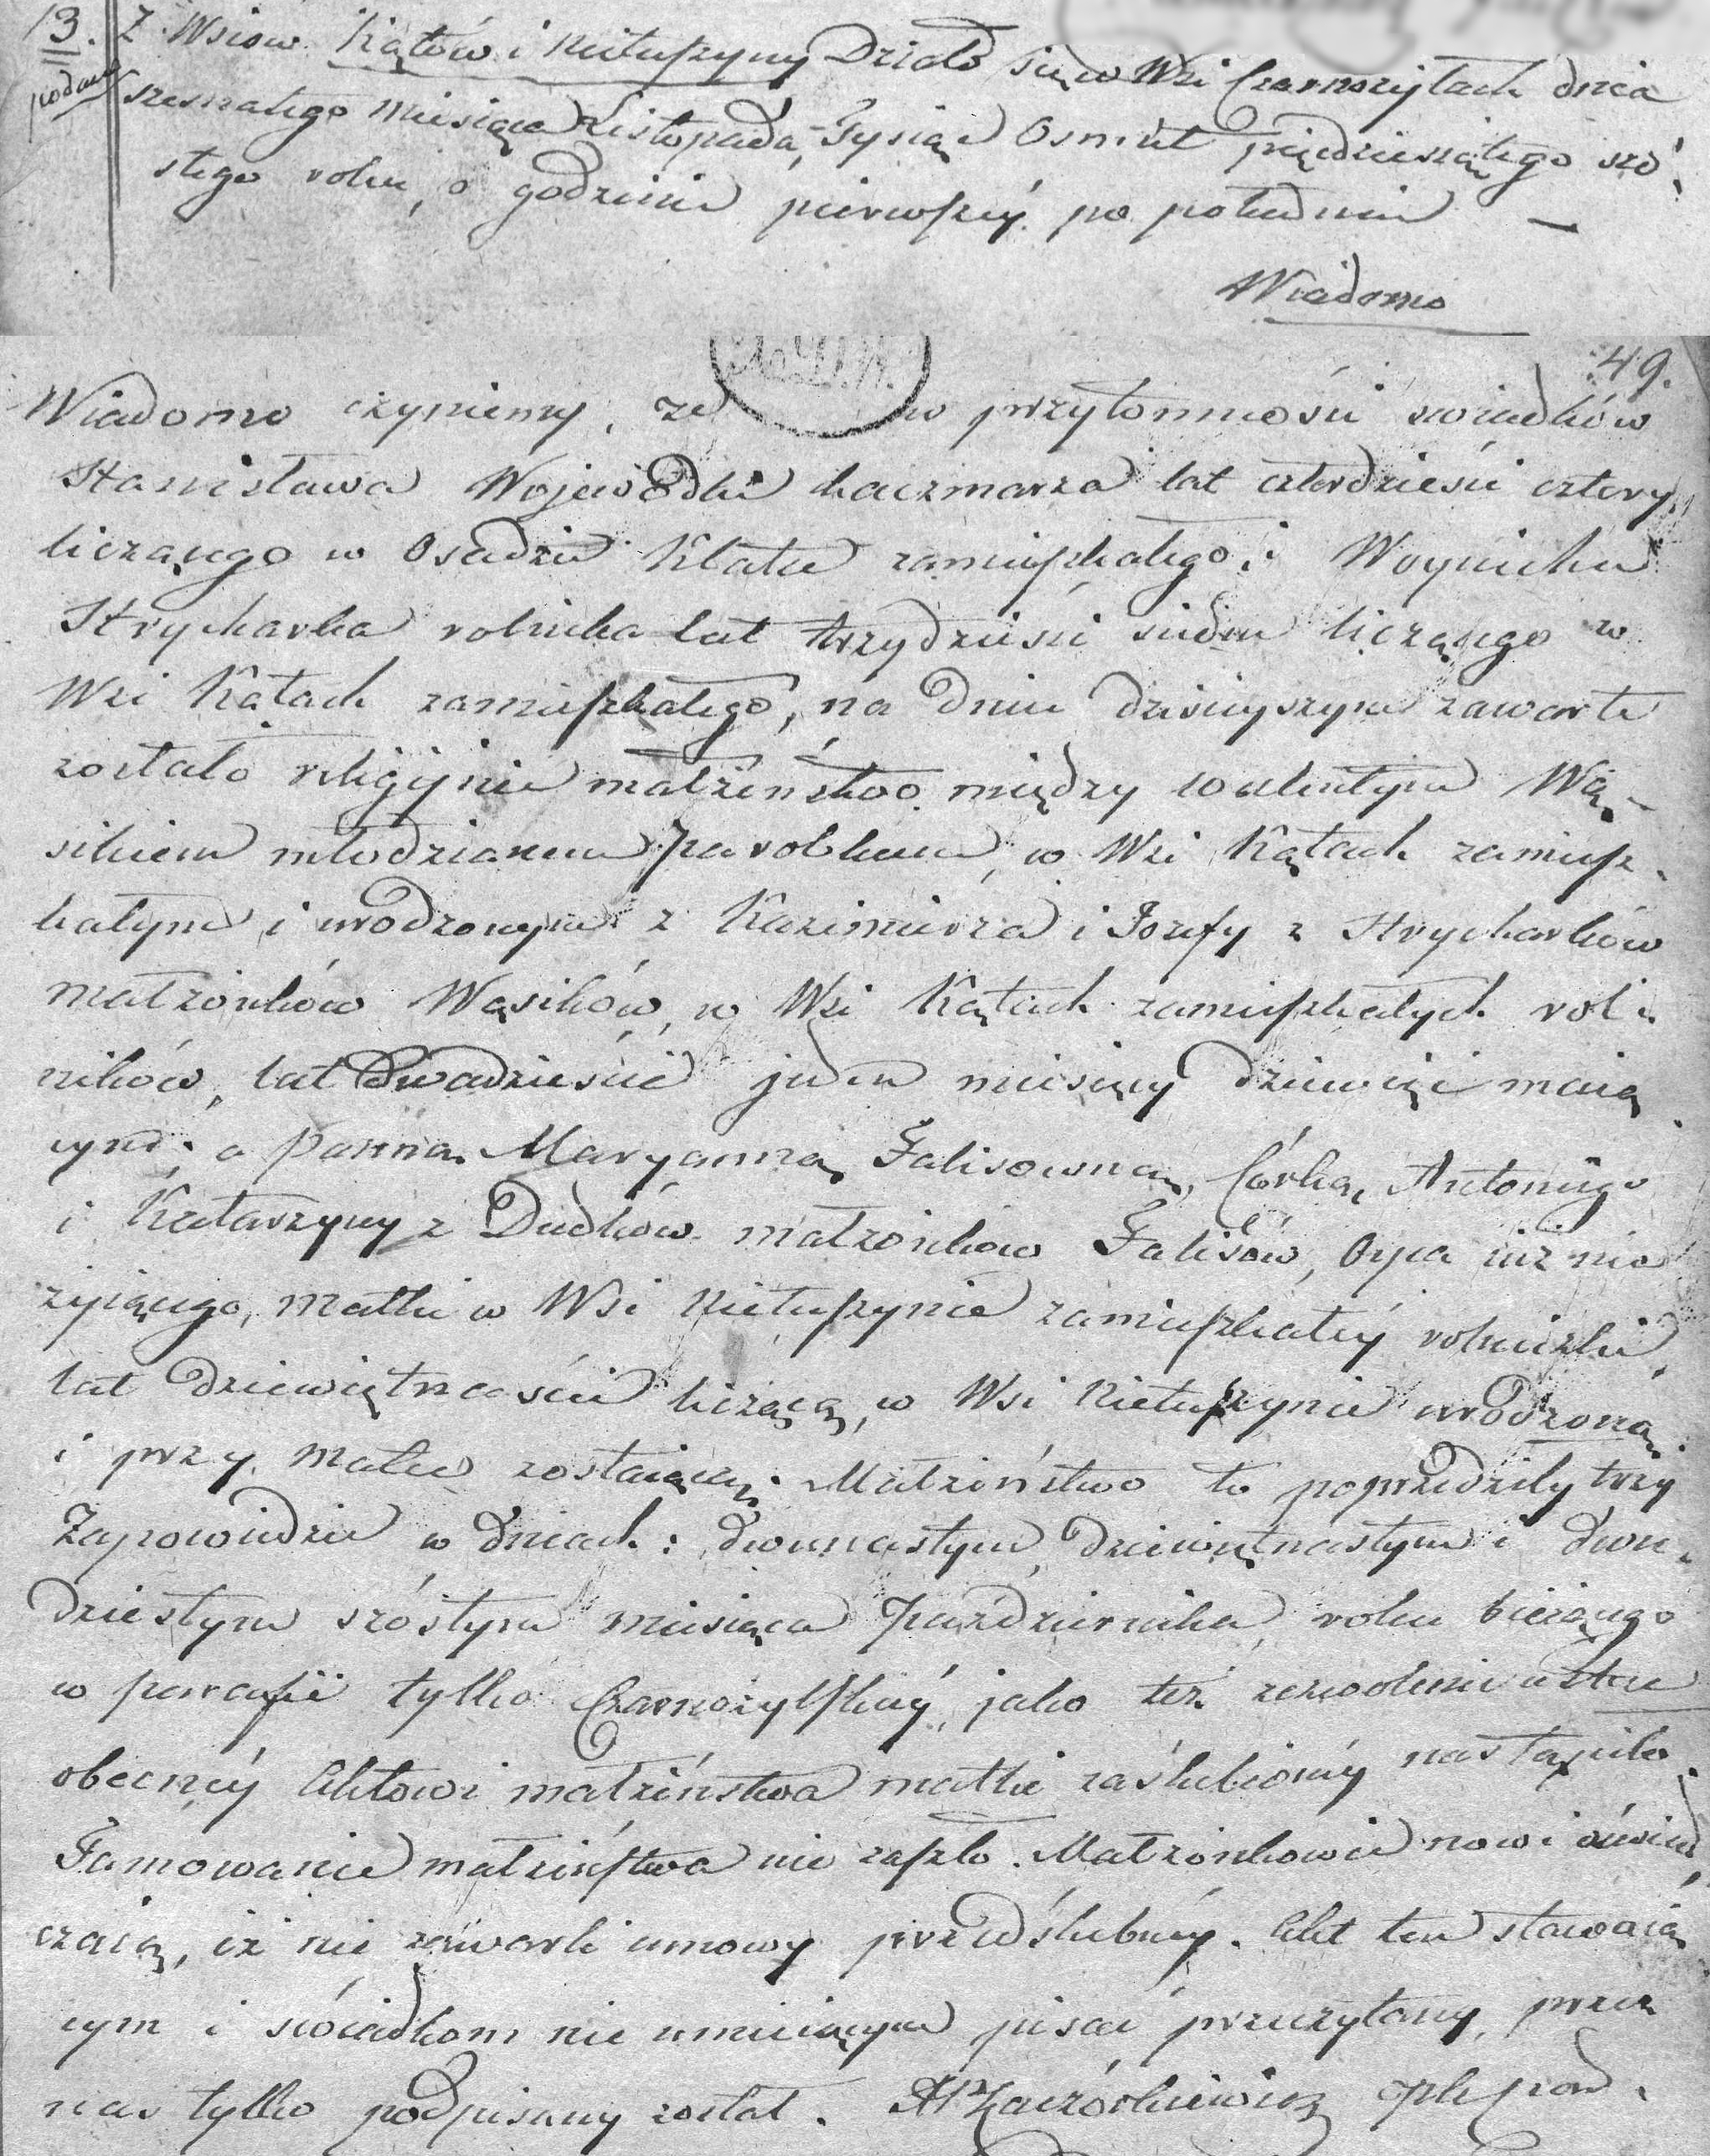 13. Z Wsiow Kątów i Nietuszyny Działo się w Wsi Czarnożyłach dnia
podany szesnatego Miesiąca Listopada, Tysiąc Osmset pięcdziesiątego szó,
stego roku, o godzinie pierwszey po południu —
Wiadomo
49.
Wiadomo czyniemy, że w przytomności swiadków
Stanisława Wojewódki kaczmarza lat czterdzieści cztery
liczącego w Osadzie Klatce zamieszkałego, i Woyciecha
Strycharka rolnika lat trzydzieści siedm liczącego w
Wsi Kątach zamieszkałego, na dniu dzisieyszym zawarte
zostało religijnie małżeństwo między Walentym Wą-
sikiem młodzianem parobkiem, w Wsi Kątach zamiesz-
kałym i urodzonym z Kazimierza i Jozefy z Strycharków
małżonków Wąsików, w Wsi Kątach zamieszkałych rol-
ników, lat dwadzieście jeden miesięcy dziewięć maią
cym; a Panną Maryanną Falisowną, Córką Antoniego
i Katarzyny z Dudków małżonków Falisów, Oyca iuż nie
żyiącego, matki w Wsi Nietuszynie zamieszkałéy rolniczki,
lat dziewiętnaście liczącą, w Wsi Nietuszynie urodzoną
i przy Matce zostaiącą. Małżeństwo to poprzedziły trzy
Zapowiedzie w dniach: dwunastym, dziewiętnastym i dwu-
dziestym szóstym miesiąca Października, roku bieżącego
w parafii tylko Czarnożylskiéy, jako też zezwolenie ustne
obecnéy Aktowi małżeństwa matki zaślubionéy nastąpiło.
Tamowanie małżeństwa nie zaszło. Małżonkowie nowi oświad
czaią, iż nie zawarli umowy przedślubnéy. Akt ten stawaią
cym i świadkom nie umieiącym pisać przeczytany, przez
nas tylko podpisany został.